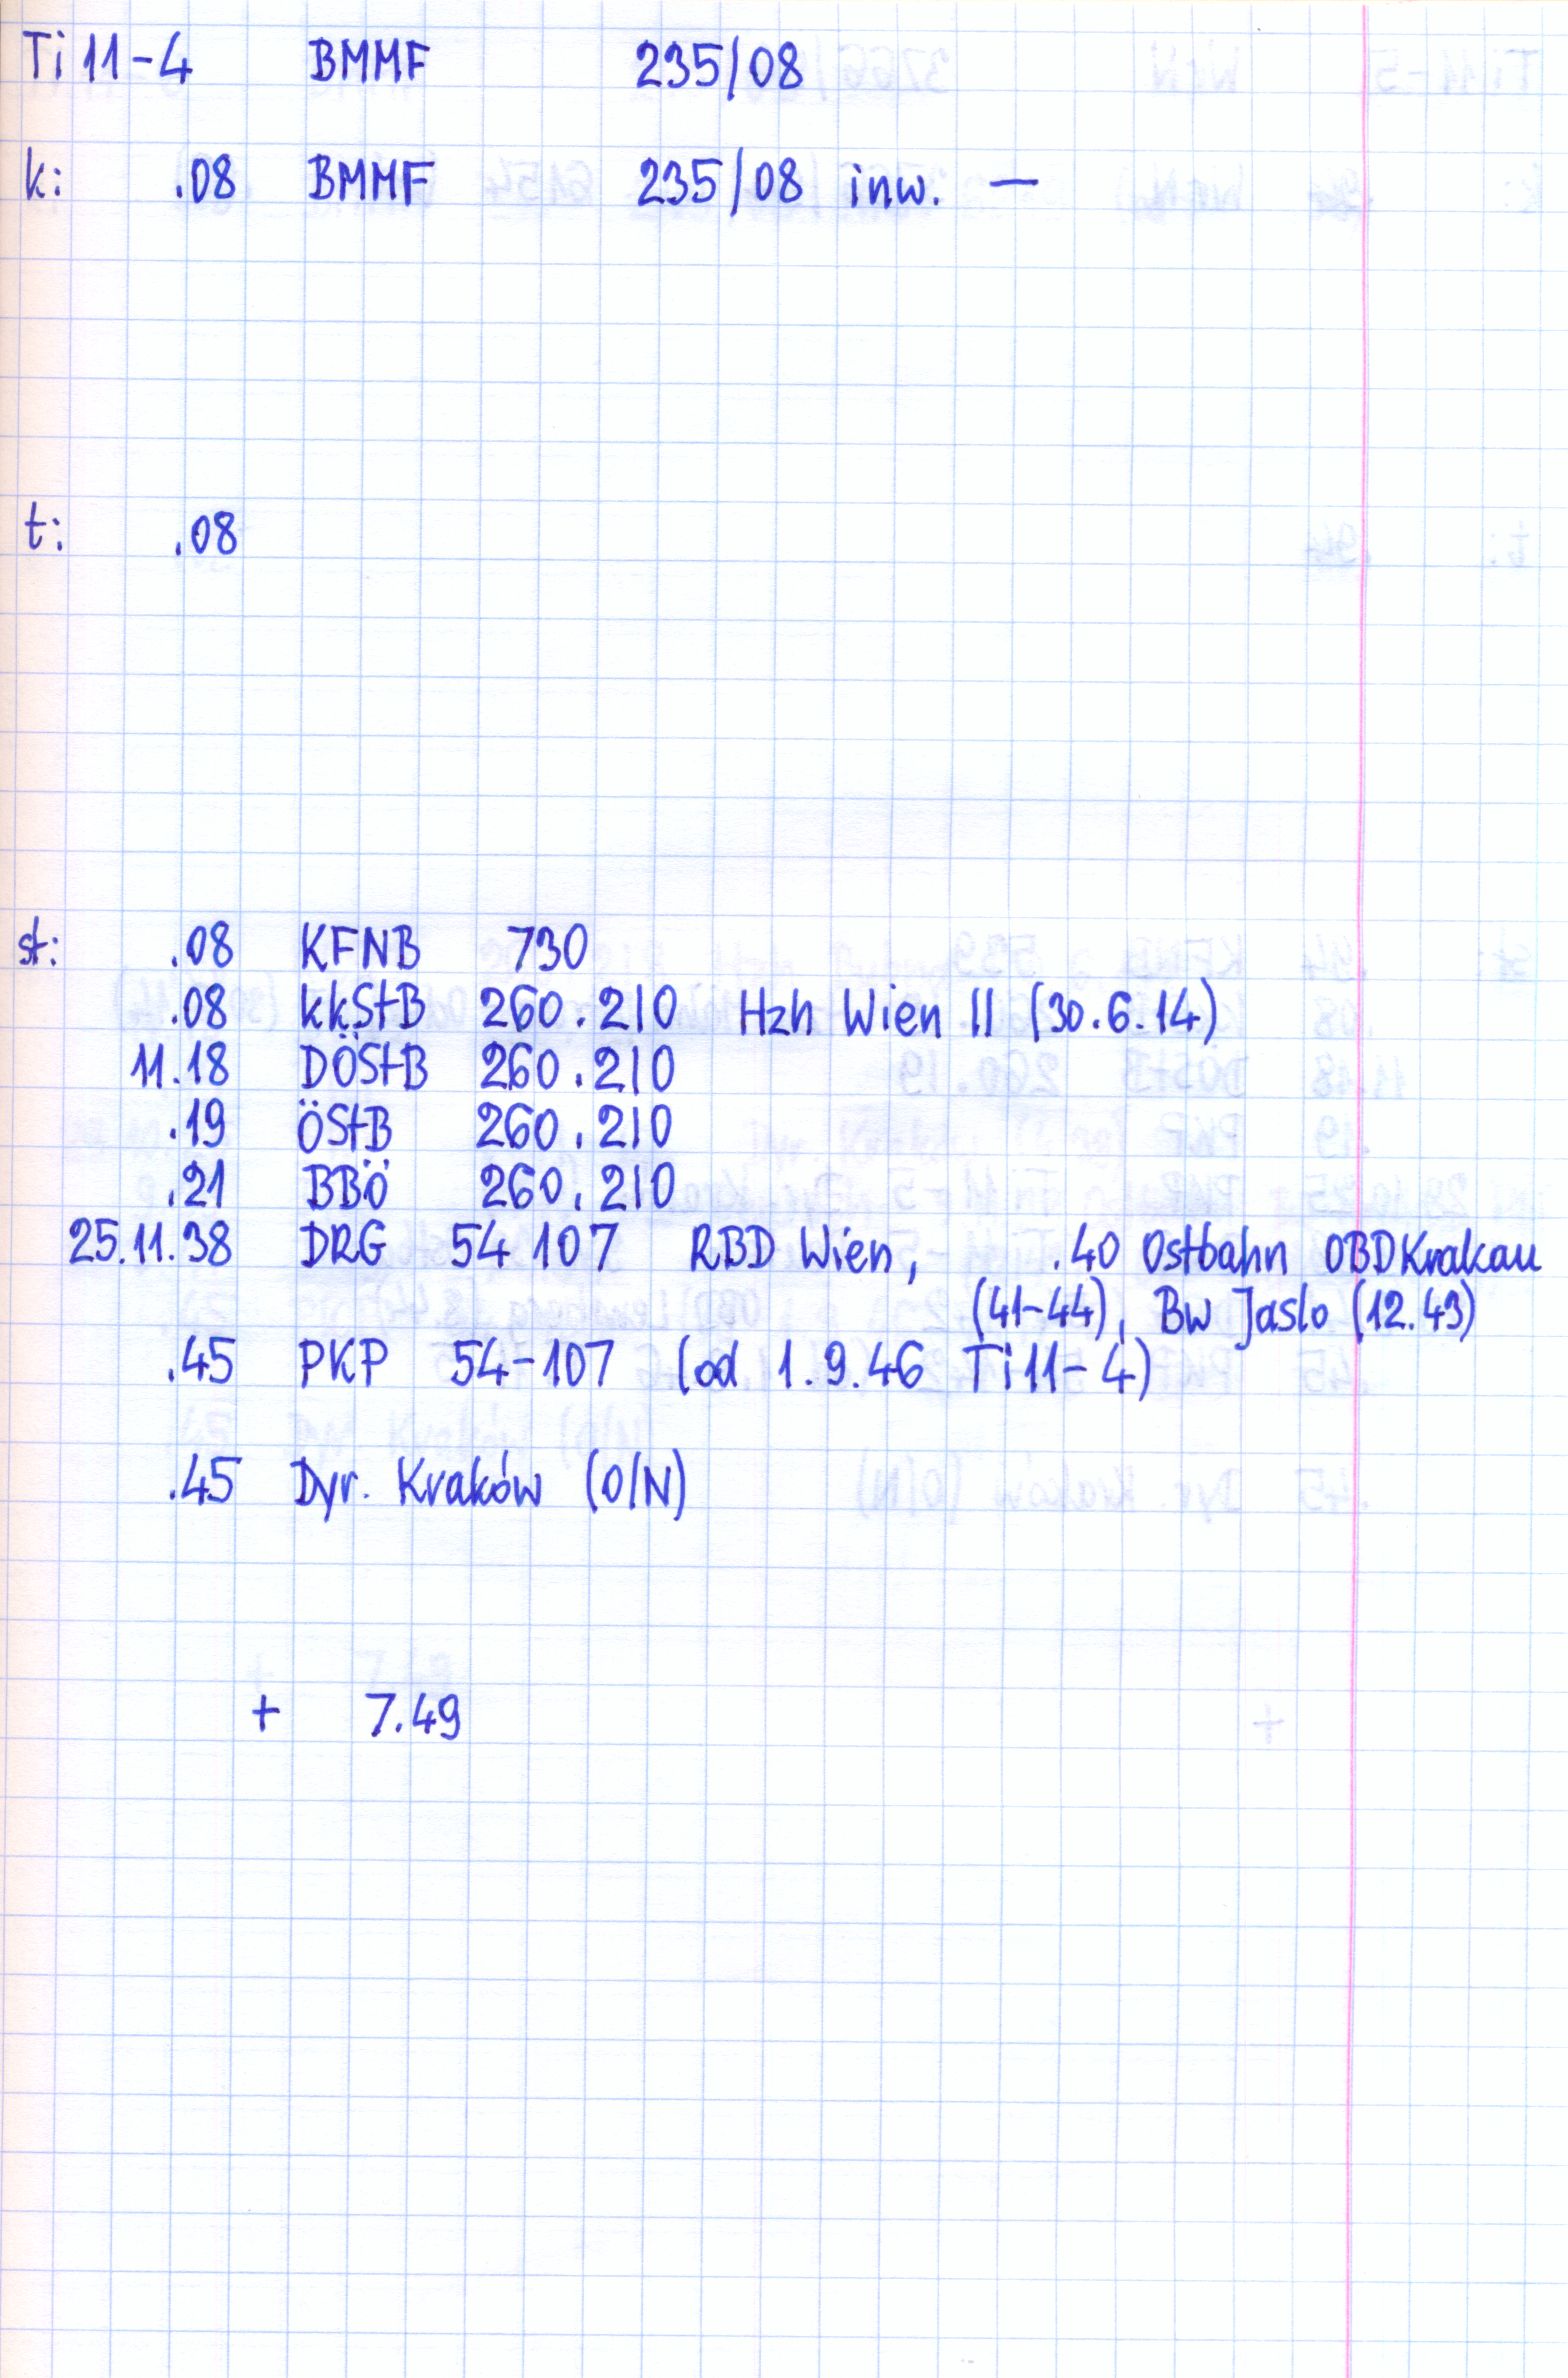 Ti 11-4 BMMF 235/08
k: .08 BMMF 235/08 inw. —
t: .08
st: .08 KFNB 730
.08 kkStB 260.210 Hzh Wien II (30.6.14)
11.18 DÖStB 260.210
.19 ÖStB 260.210
.21 BBÖ 260.210
25.11.38 DRG 54 107 RBD Wien, .40 Ostbahn OBD Krakau
(41-44), Bw Jaslo (12.43)
.45 PKP 54-107 (od 1.9.46 Ti 11-4)
.45 Dyr. Kraków (O/N)
+ 7.49